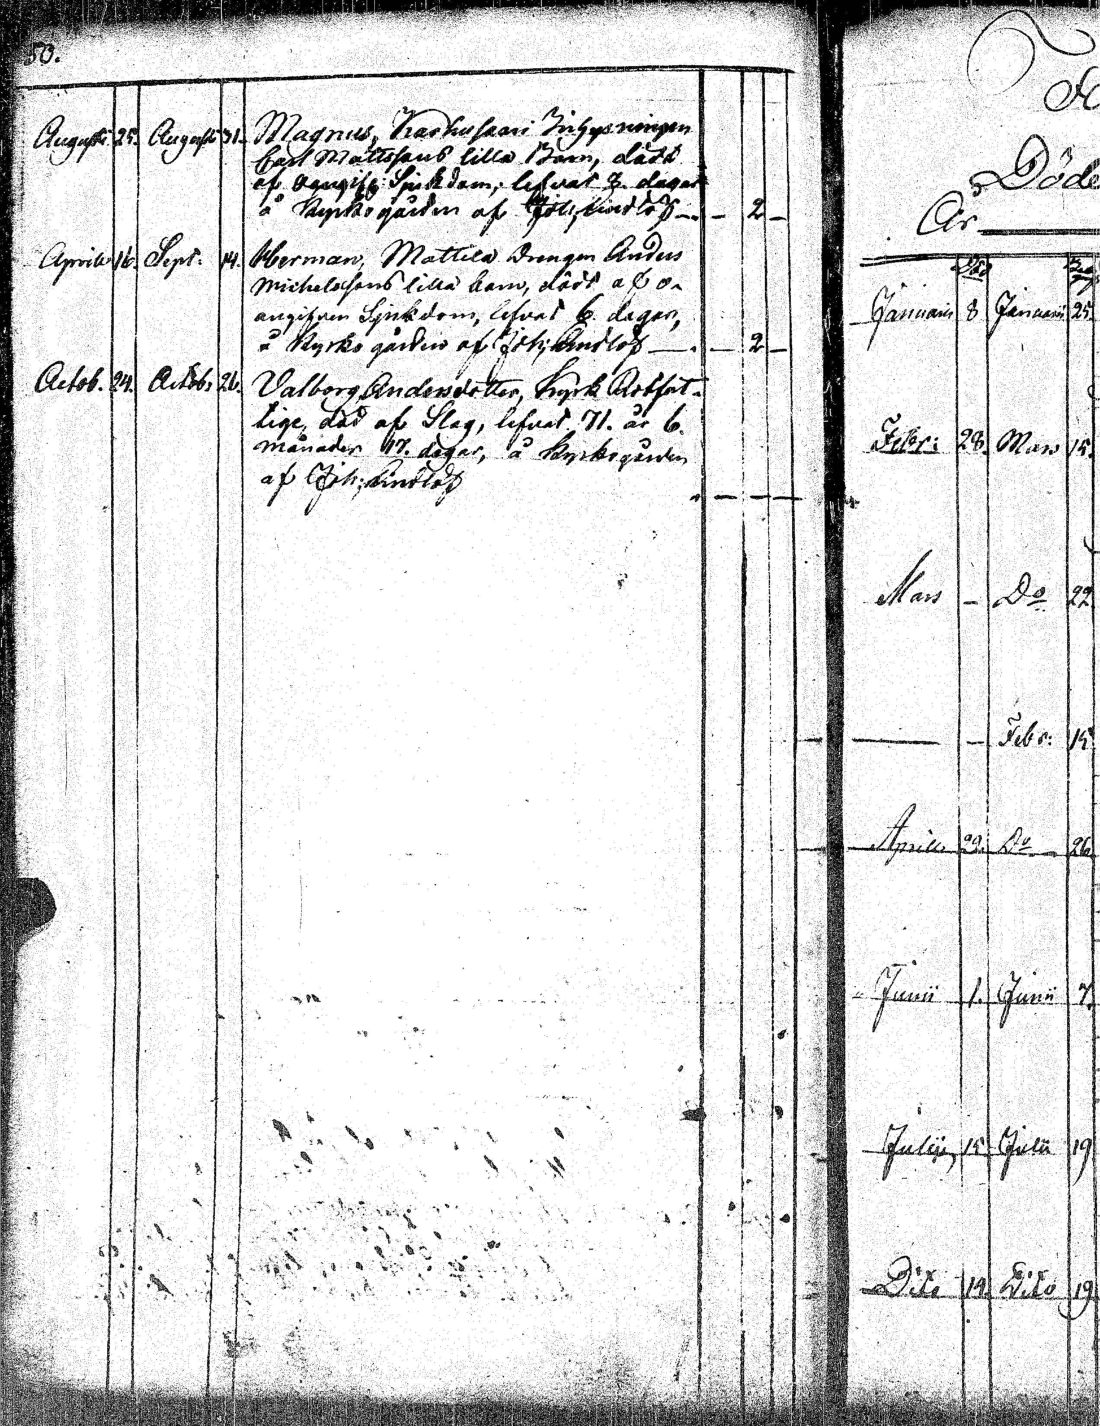 50.
Augusti 25. Augusti 31. Magnus, Inhysningen
Carl Mattssons lilla Barn, dödt
af oangifv: Sjukdom, lefvat 3. dagar
å Kyrkogården af Joh: Lindlöf — 2 —
Aprill 16. Sept: 14. Herman, Mattila Drengen Anders
Michelssons lilla barn, dödt af o-
angifven Sjukdom, lefvat 6. dagar,
å Kyrkogården af Joh: Lindlöf — 2 —
Octob. 24. Octob: 26. Valborg Andersdotter, Kyrk
död af Slag, lefvat 71. år 6.
månader 17. dagar, å Kyrkogården
af Joh: Lindlöf
Döde
År
Död
Januarii 8 Januarii 25.
Febr: 28. Mars 15.
Mars — Do 22
— — Febr: 15
Aprill 29. Do 26
Junii 1. Junii 7.
Julii, 15 Julii 19
Dito 14. Dito 19